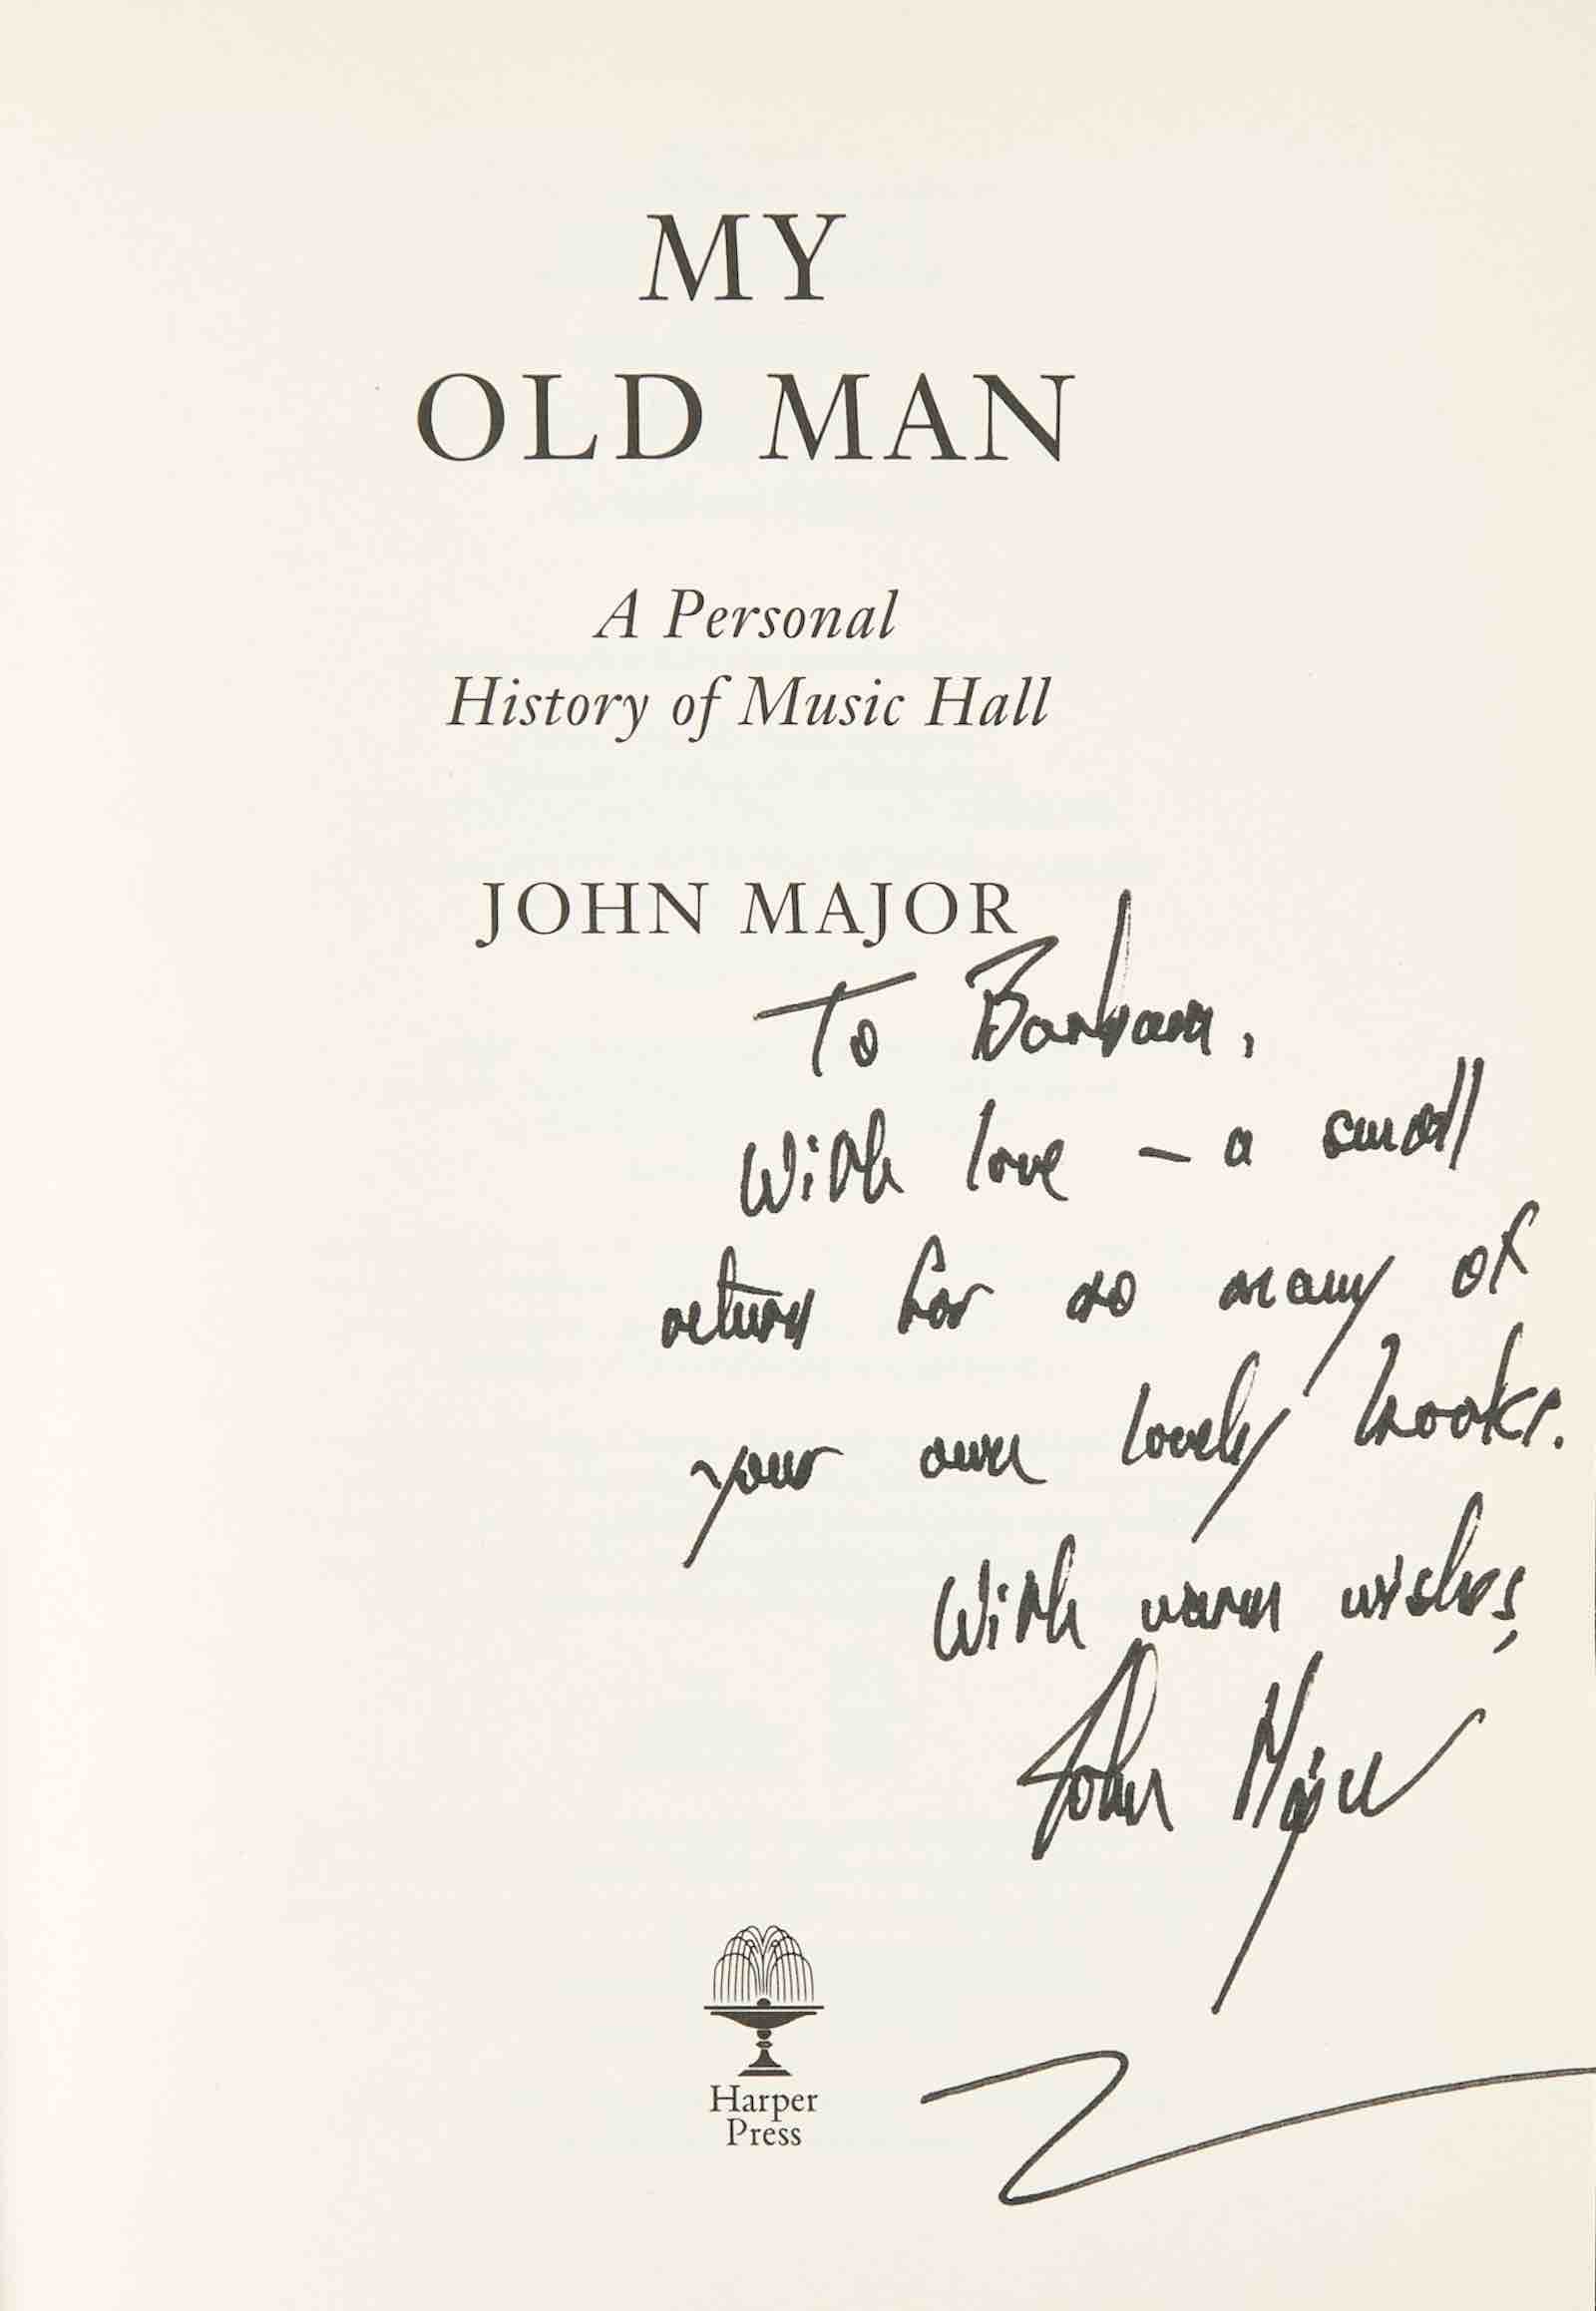 MY
OLD MAN
A Personal
History of Music Hall
JOHN MAJOR
To Barbara,
With love – a small
return for so many of
your own lovely books.
With warm wishes,
John Major
Harper
Press